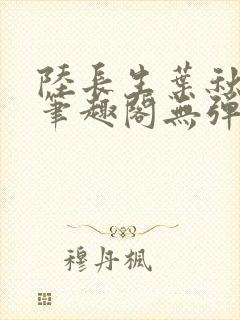 陸長生葉秋
筆趣閣無彈
穆丹楓